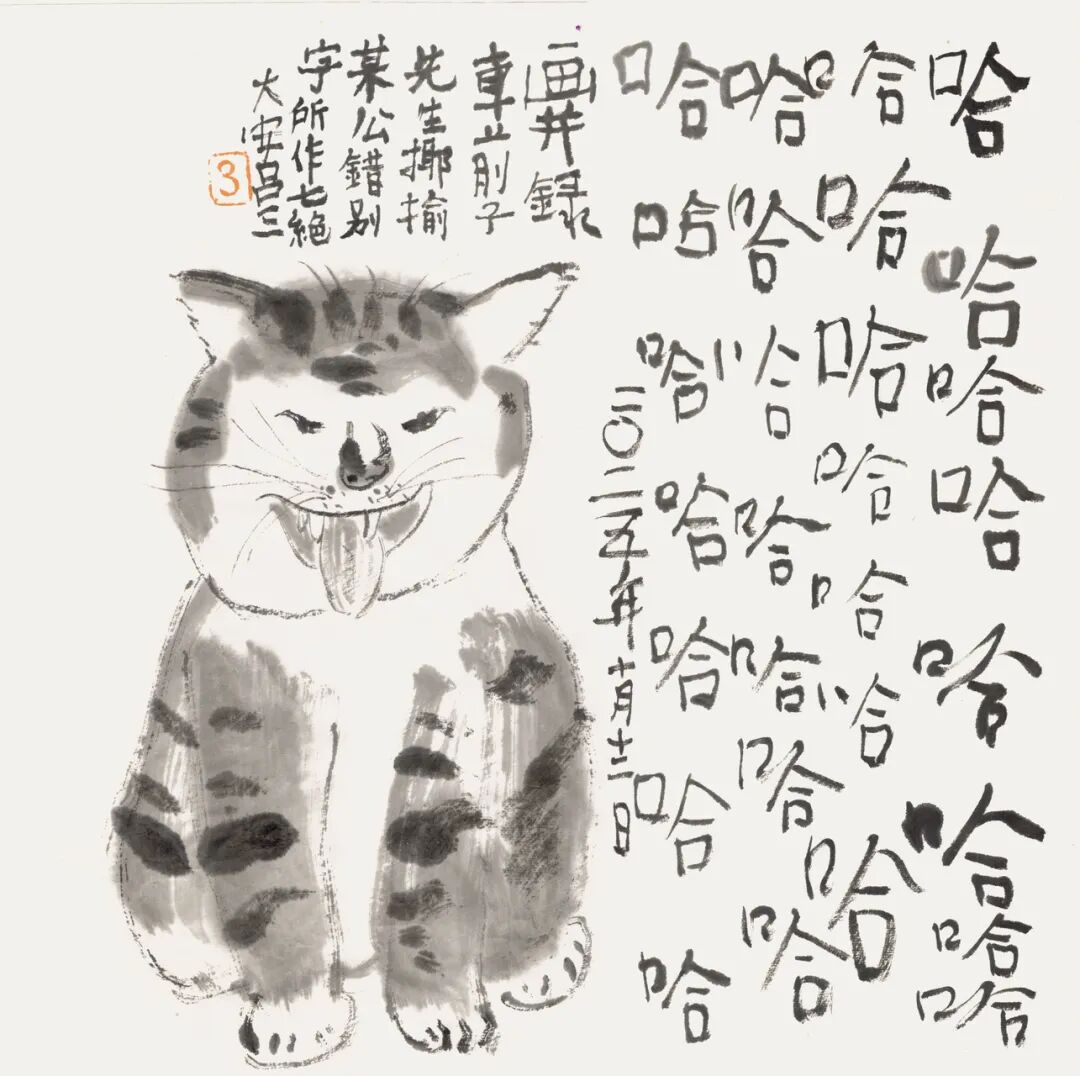 哈哈哈哈哈哈哈哈
哈哈哈哈哈哈哈
哈哈哈哈哈哈哈
哈哈哈哈哈哈哈
二〇二五年十月十二日
画并録
車立刖子
先生揶揄
某公錯别
字所作七絶
大安吕三
3